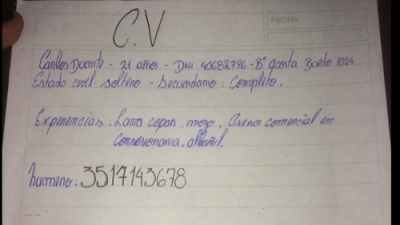 FECHA
C.V
Carlos Duarte - 21 años - DNI 40682796 - B° Acosta Bordo 1024
Estado civil - soltero - Secundario: Completo.
Experiencias: Lava copas, mozo, Asesor comercial en
concesionaria, albañil.
numero: 3517143678